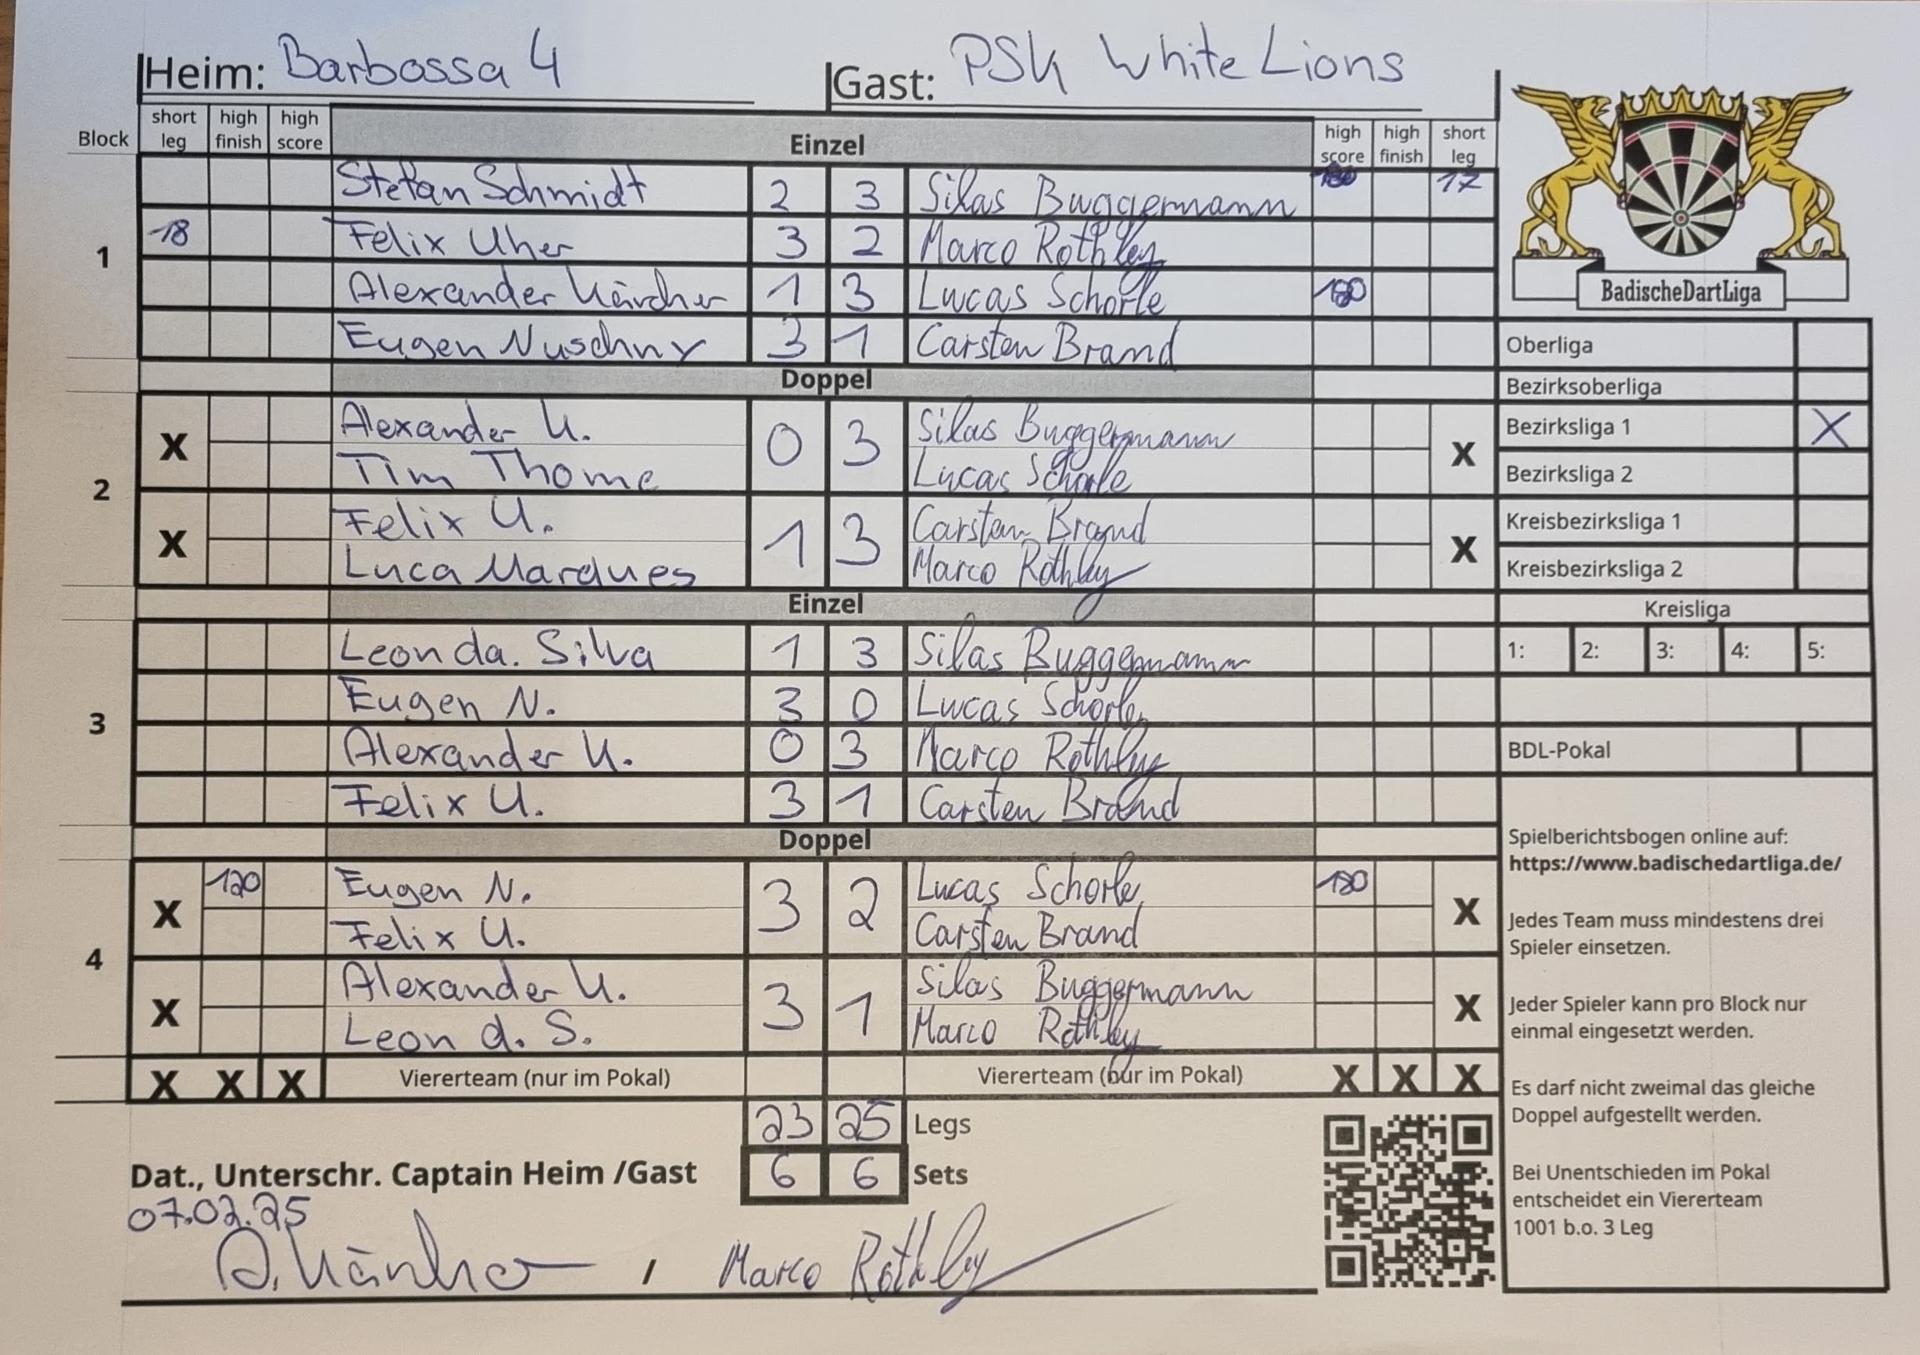 Heim: Barbossa 4 Gast: PSK White Lions
Block short leg high finish high score Einzel high score high finish short leg
1
Stefan Schmidt 2 3 Silas Buggermann 17
18 Felix Uher 3 2 Marco Rothley
Alexander Kärcher 1 3 Lucas Schorle 180
Eugen Nuschny 3 1 Carsten Brand
Doppel
2
X Alexander K. 0 3 Silas Buggermann X
Tim Thome Lucas Schorle
X Felix U. 1 3 Carsten Brand X
Luca Marques Marco Rothley
Einzel
3
Leon da. Silva 1 3 Silas Buggermann
Eugen N. 3 0 Lucas Schorle
Alexander K. 0 3 Marco Rothley
Felix U. 3 1 Carsten Brand
Doppel
4
X 120 Eugen N. 3 2 Lucas Schorle 180 X
Felix U. Carsten Brand
X Alexander K. 3 1 Silas Buggermann X
Leon d. S. Marco Rothley
X X X Viererteam (nur im Pokal) Viererteam (nur im Pokal) X X X
23 25 Legs
Dat., Unterschr. Captain Heim /Gast 6 6 Sets
07.02.25
A. Kärcher / Marco Rothley
BadischeDartLiga
Oberliga
Bezirksoberliga
Bezirksliga 1 X
Bezirksliga 2
Kreisbezirksliga 1
Kreisbezirksliga 2
Kreisliga
1: 2: 3: 4: 5:
BDL-Pokal
Spielberichtsbogen online auf:
https://www.badischedartliga.de/
Jedes Team muss mindestens drei
Spieler einsetzen.
Jeder Spieler kann pro Block nur
einmal eingesetzt werden.
Es darf nicht zweimal das gleiche
Doppel aufgestellt werden.
Bei Unentschieden im Pokal
entscheidet ein Viererteam
1001 b.o. 3 Leg